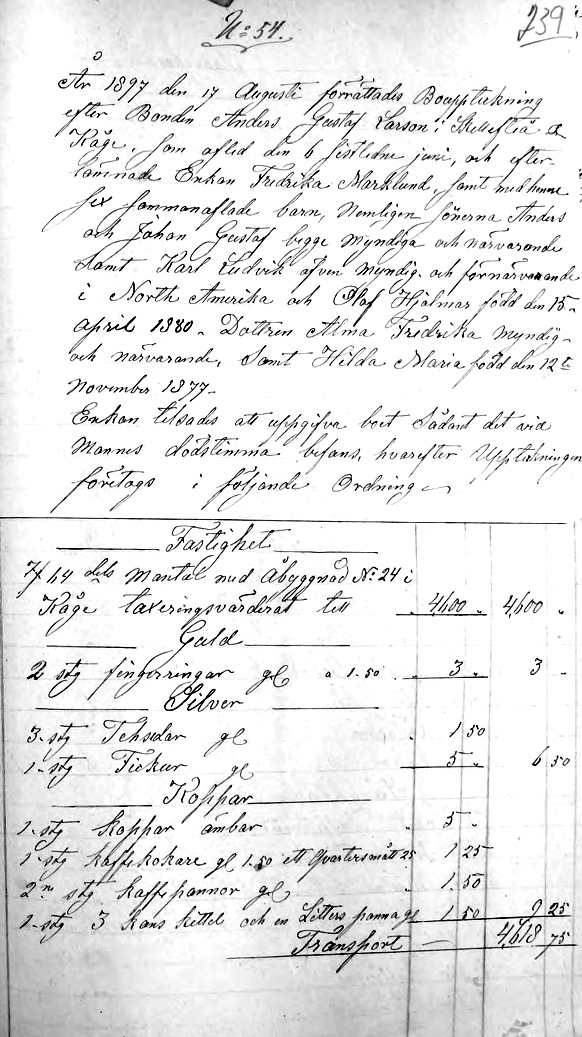 No 54.
239
År 1897 den 17 Augusti förrättades Bouppteckning
efter Bonden Anders Gustaf Larson i Skellefteå &
Kåge, som afled den 6 sistledne juni, och efter
lämnade Enkan Fredrika Marklund, samt med henne
sex sammanaflade barn, Nemligen Sönerna Anders
och Johan Gustaf begge Myndiga och närvarande
samt Karl Ludvik afven myndig och förnärvarande
i North Amerika och Olof Hjalmar född den 15-
april 1880 - Dottren Alma Fredrika myndig-
och närvarande, samt Hilda Maria född den 12te
November 1877-
Enkan tilsades att uppgifva boet Sådant det vid
Mannes dödstimma befans, hvarefter Uppteckningen
företogs i följande Ordning
Fastighet
7/64 dels Mantal med Åbyggnad No 24 i
Kåge taxeringsvärderat till " 4,600 " 4,600 "
Guld
2 stg fingerringar gl a 1.50 " 3 " 3 "
Silver
3- stg Tehsedar gl " 1 50
1- stg Fickur gl 5 " 6 50
Koppar
1- stg Koppar ämbar " 5 "
1- stg kaffekokare gl 1.50 ett Qvartersmått 25 1 25
2ne stg kaffepannor gl " 1. 50
1- stg 3 kans kettel och en Litters panna gl 1 50 9 25
Transport — 4,618 75